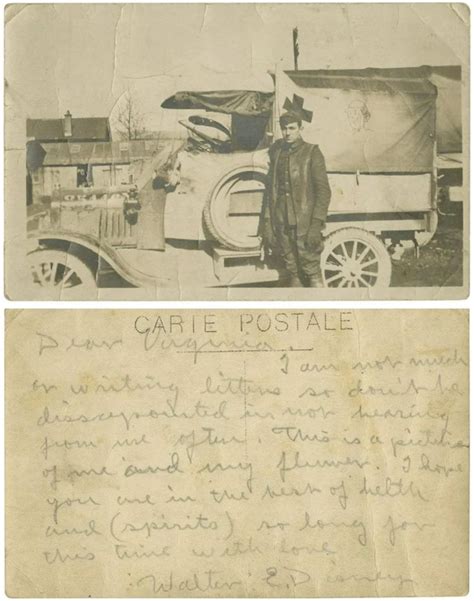 CARTE POSTALE
Dear Virginia.
I am not much
on writing littens so don't be
dissapointed in not hearing
from me often. This is a picture
of me and my fluwer. I hope
you are in the best of helth
and (spirits) so long for
this time with love
Walter E. Disney